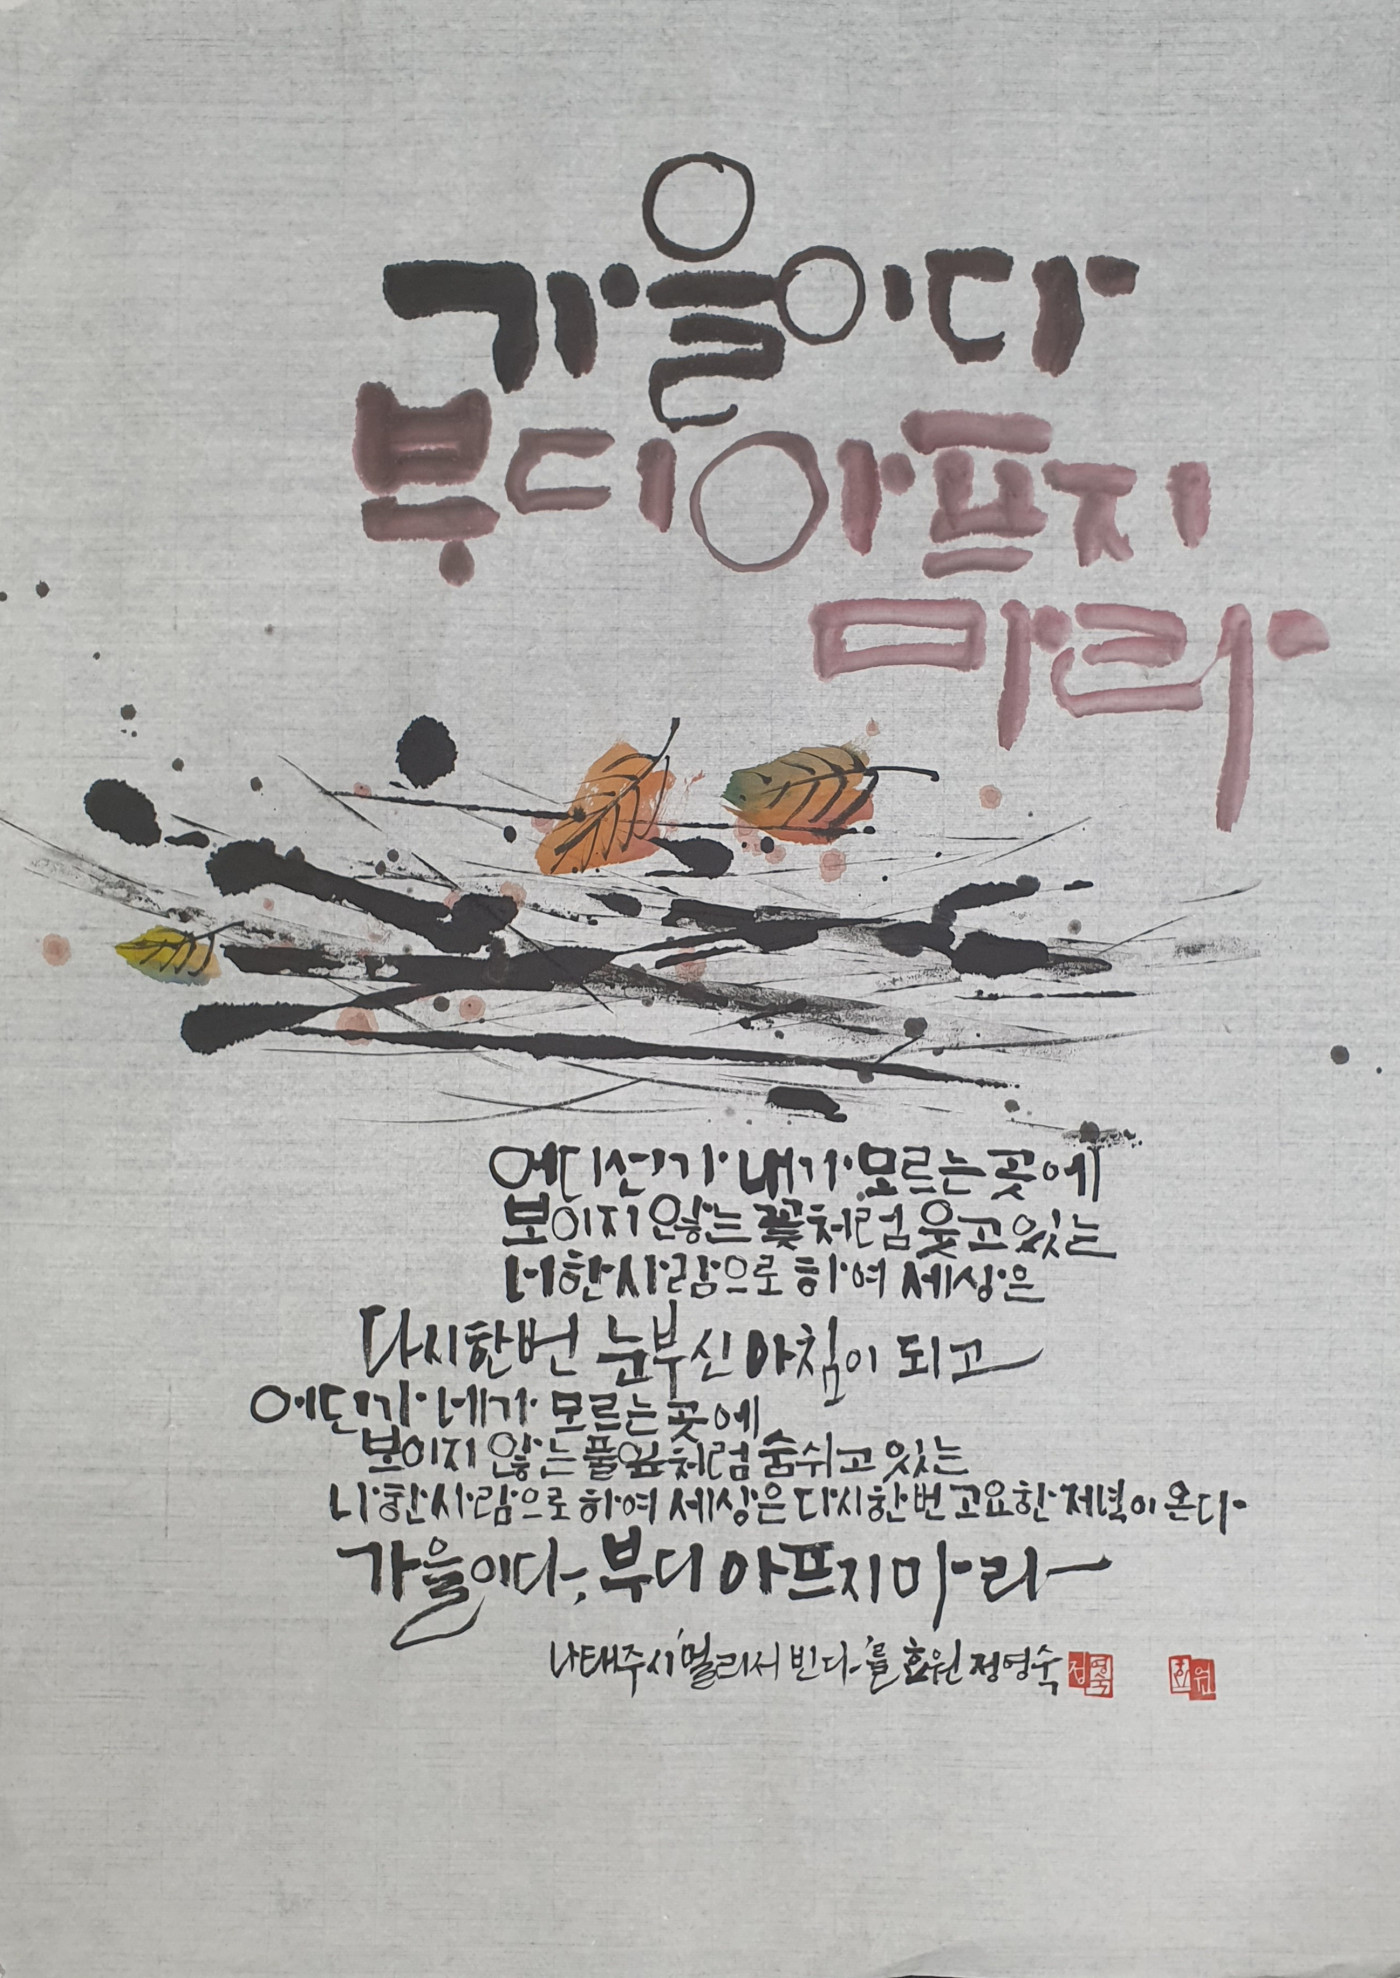 가을이다
부디 아프지
마라
어디선가 내가 모르는 곳에
보이지 않는 꽃처럼 웃고 있는
너 한 사람으로 하여 세상은
다시 한 번 눈부신 아침이 되고
어딘가 네가 모르는 곳에
보이지 않는 풀잎처럼 숨쉬고 있는
나 한 사람으로 하여 세상은 다시 한 번 고요한 저녁이 온다
가을이다, 부디 아프지 마라
나태주 시 '멀리서 빈다'를 효원 정영숙
정영숙 효원